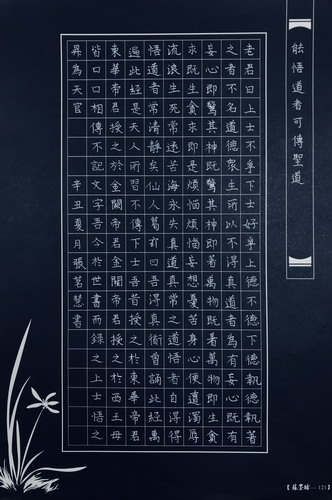 能悟道者可傳聖道
老君曰上士不爭下士好爭上德不德下德執德執著
之者不名道德眾生所以不得真道者為有妄心既有
妄心即驚其神既驚其神即著萬物既著萬物即生貪
求既生貪求即是煩惱煩惱妄想憂苦身心便遭濁辱
流浪生死常沉苦海永失真道真常之道悟者自得得
悟道者常清靜矣仙人葛翁曰吾得真道曾誦此經萬
遍此經是天人所習不傳下士吾昔授之於東華帝君
東華帝君授之於金闕帝君金闕帝君授之於西王母
皆口口相傳不記文字吾今於世書而錄之上士悟之
昇為天官 辛丑夏月張茗慧書
121